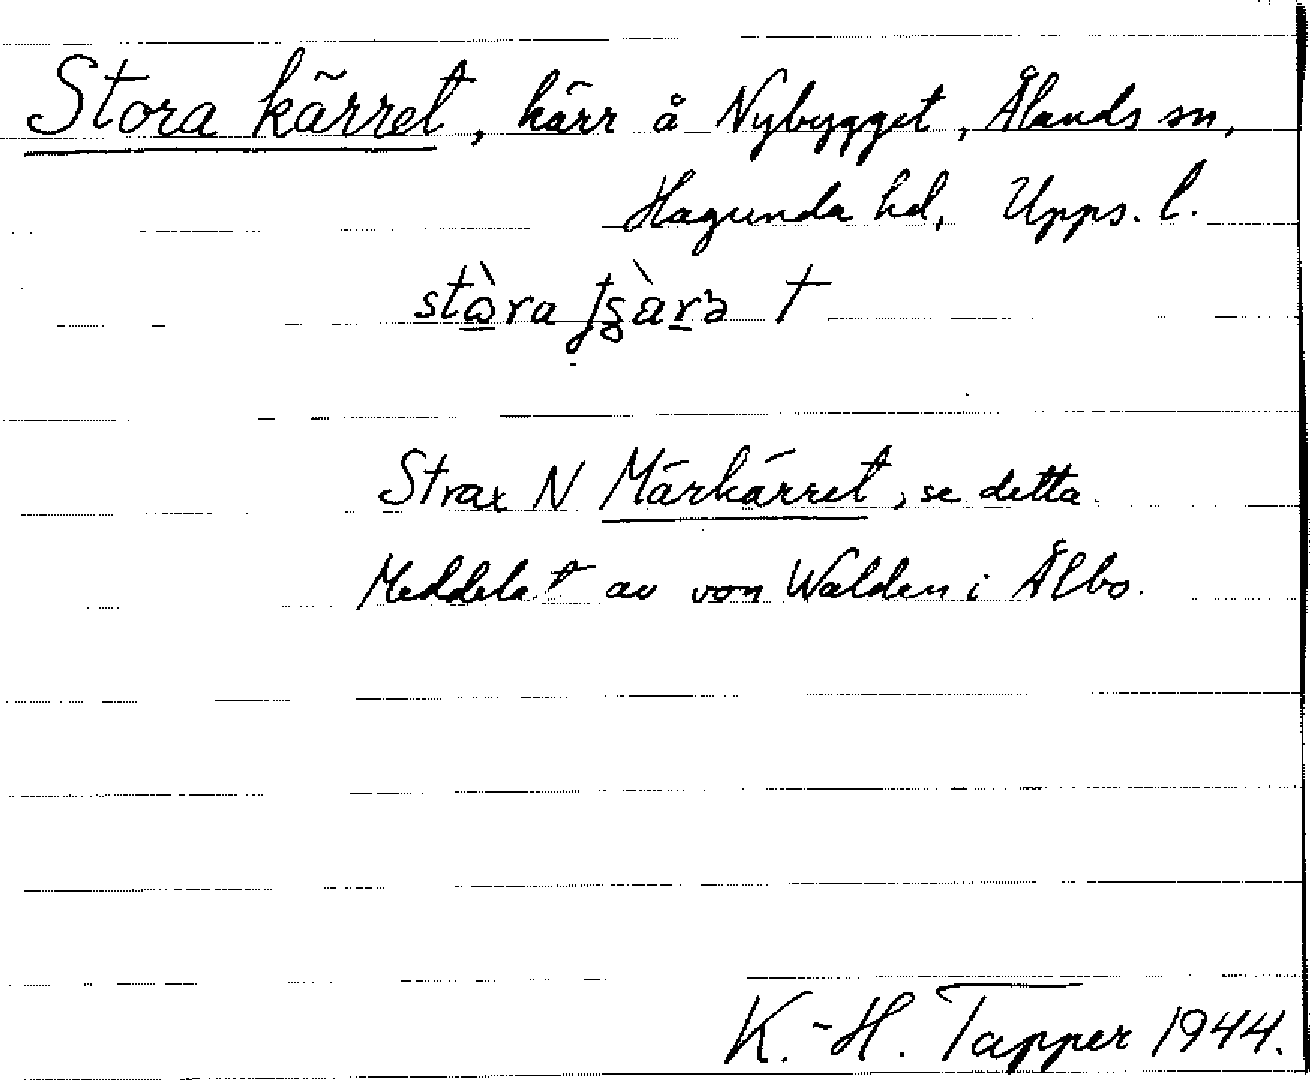 Stora kärret, kärr å Nybygget, Ålands sn,
Hagunda hd, Upps. l.
†
Strax N Märkärret, se detta.
Meddelat av von Walden i Ålbo.
K.-H. Tapper 1944.